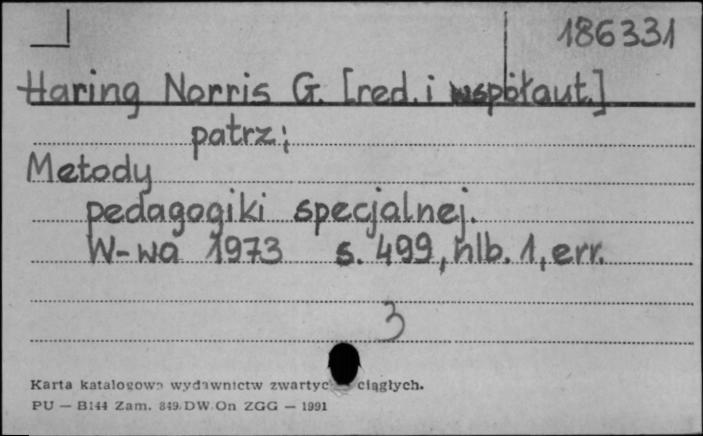 186331
Haring Norris G. [red. i współaut.]
patrz:
Metody
pedagogiki specjalnej.
W-wa 1973 s. 499, nlb. 1, err.
3
Karta katalogowa wydawnictw ciągłych.
PU — B144 Zam. 849 DW On ZGG — 1991